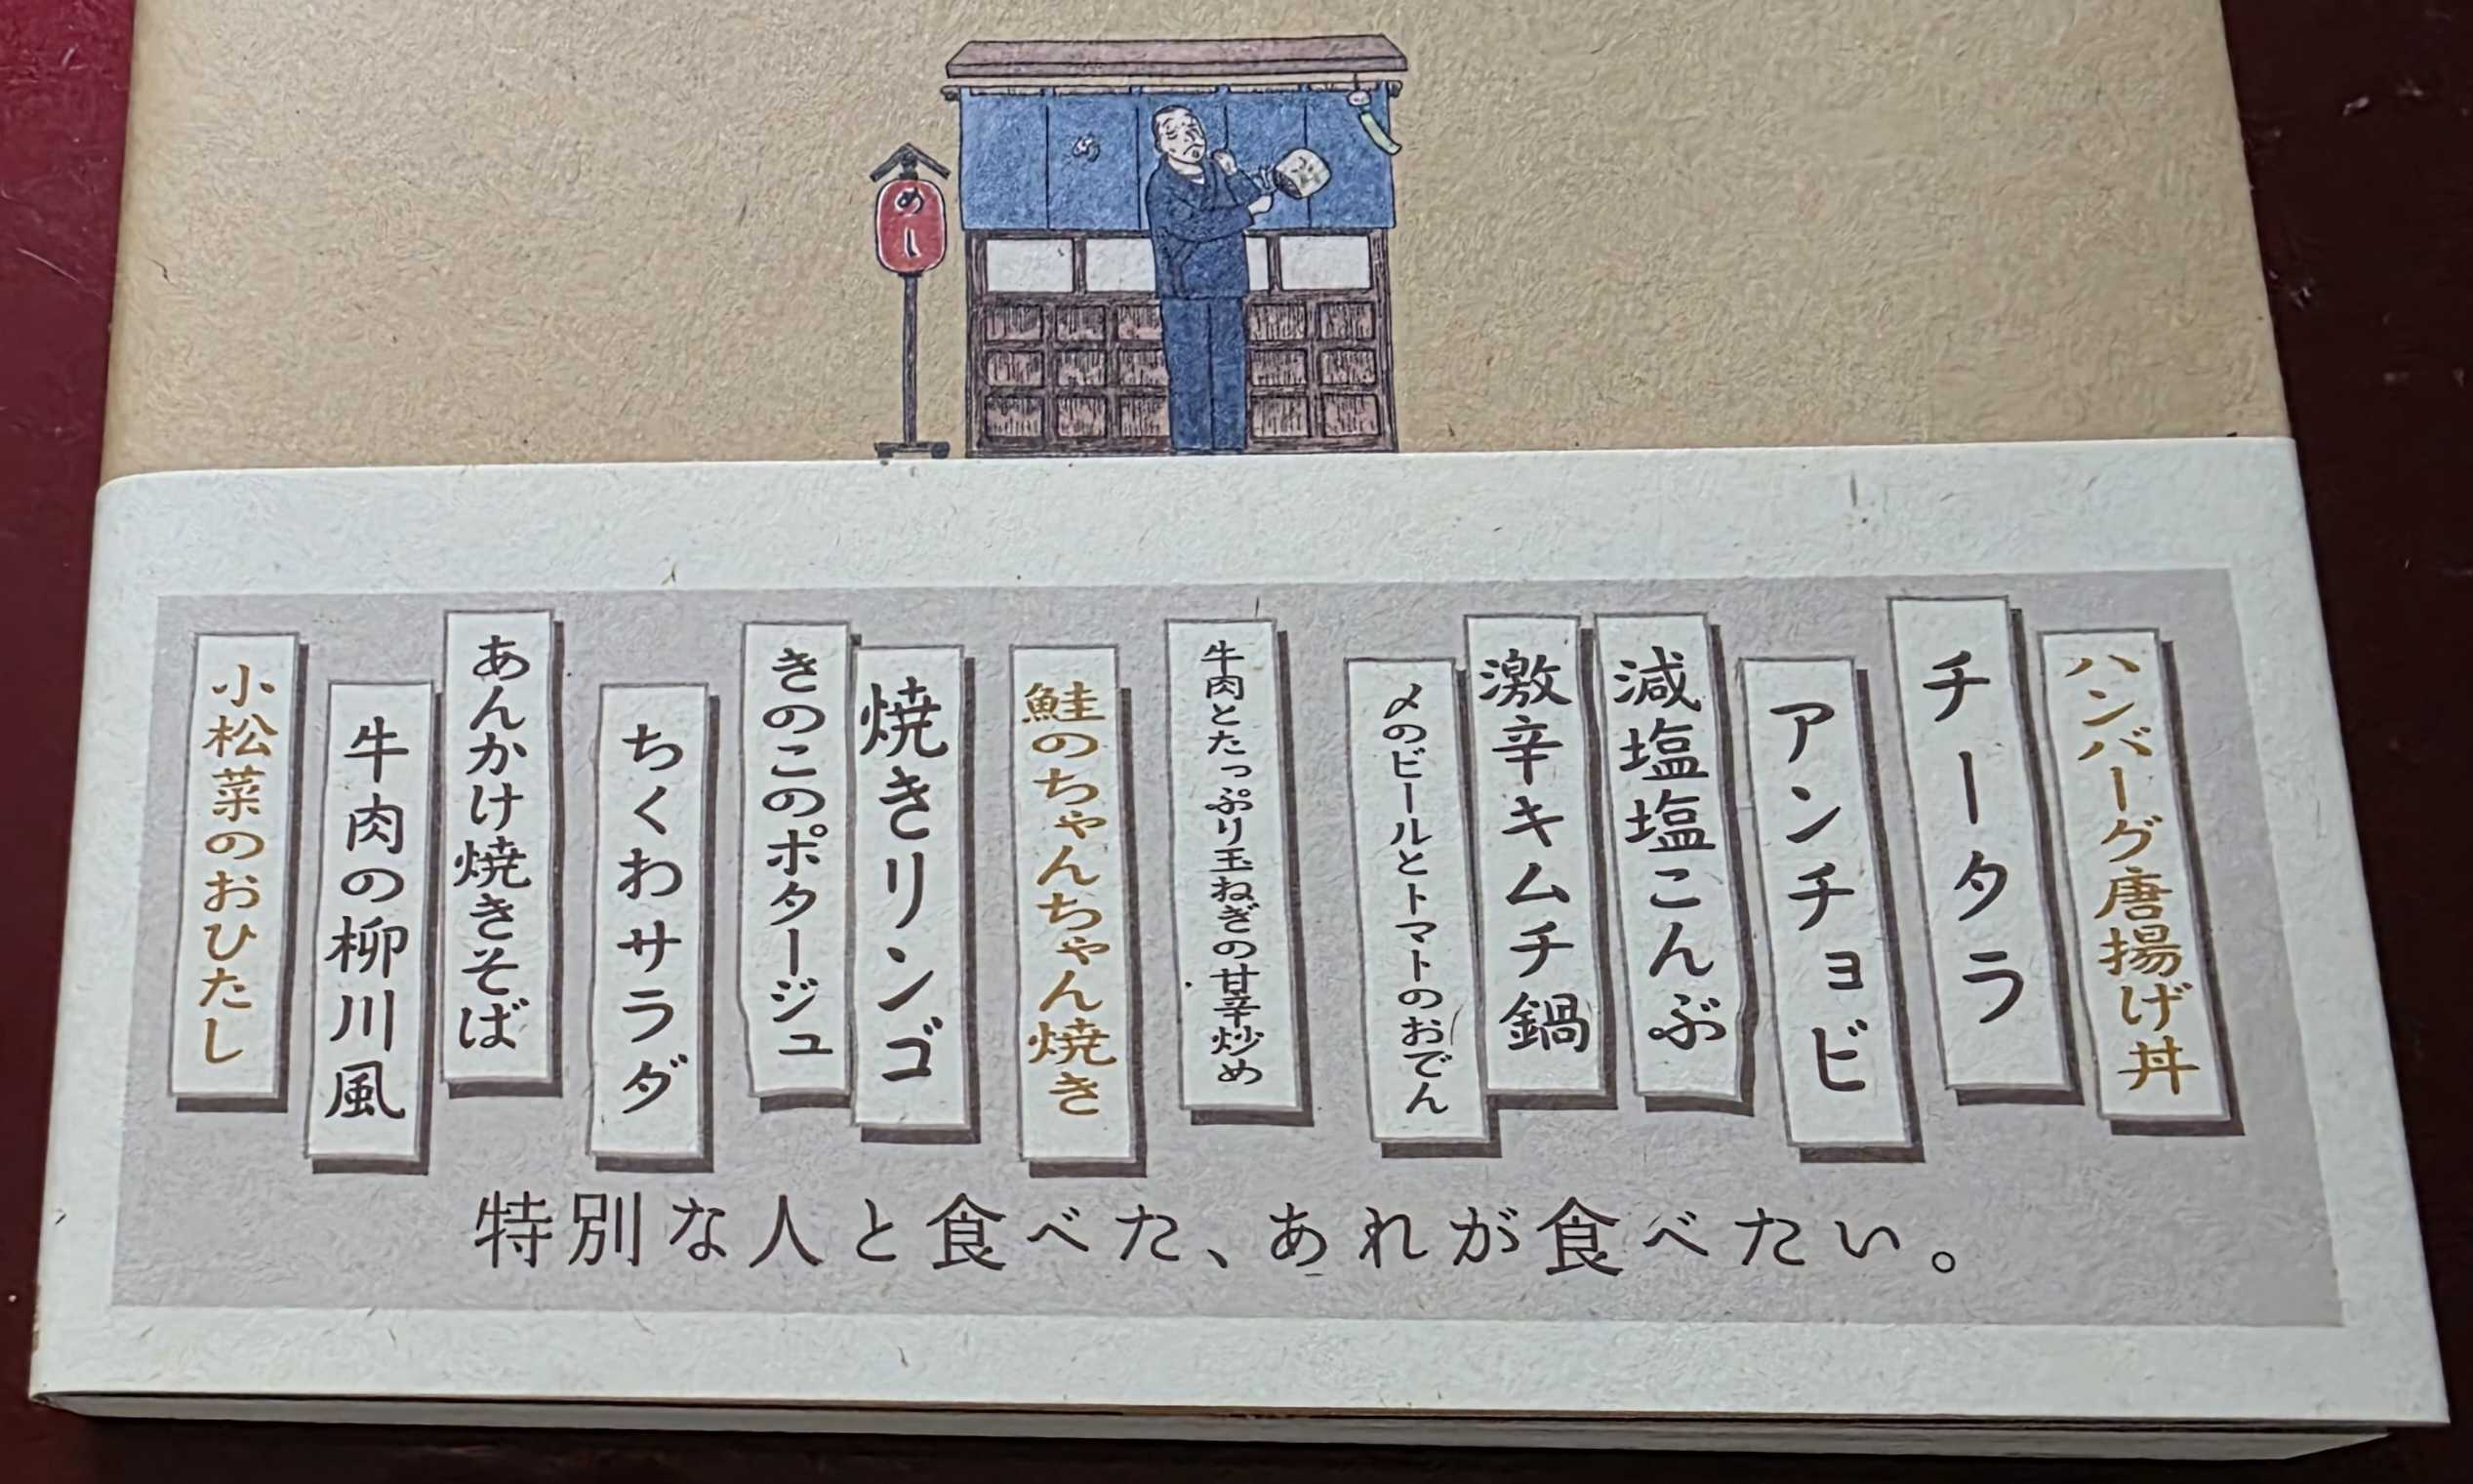 め
めし
ハンバーグ唐揚げ丼
チータラ
アンチョビ
減塩塩こんぶ
激辛キムチ鍋
〆のビールとトマトのおでん
牛肉とたっぷり玉ねぎの甘辛炒め
鮭のちゃんちゃん焼き
焼きリンゴ
きのこのポタージュ
ちくわサラダ
あんかけ焼きそば
牛肉の柳川風
小松菜のおひたし
特別な人と食べた、あれが食べたい。